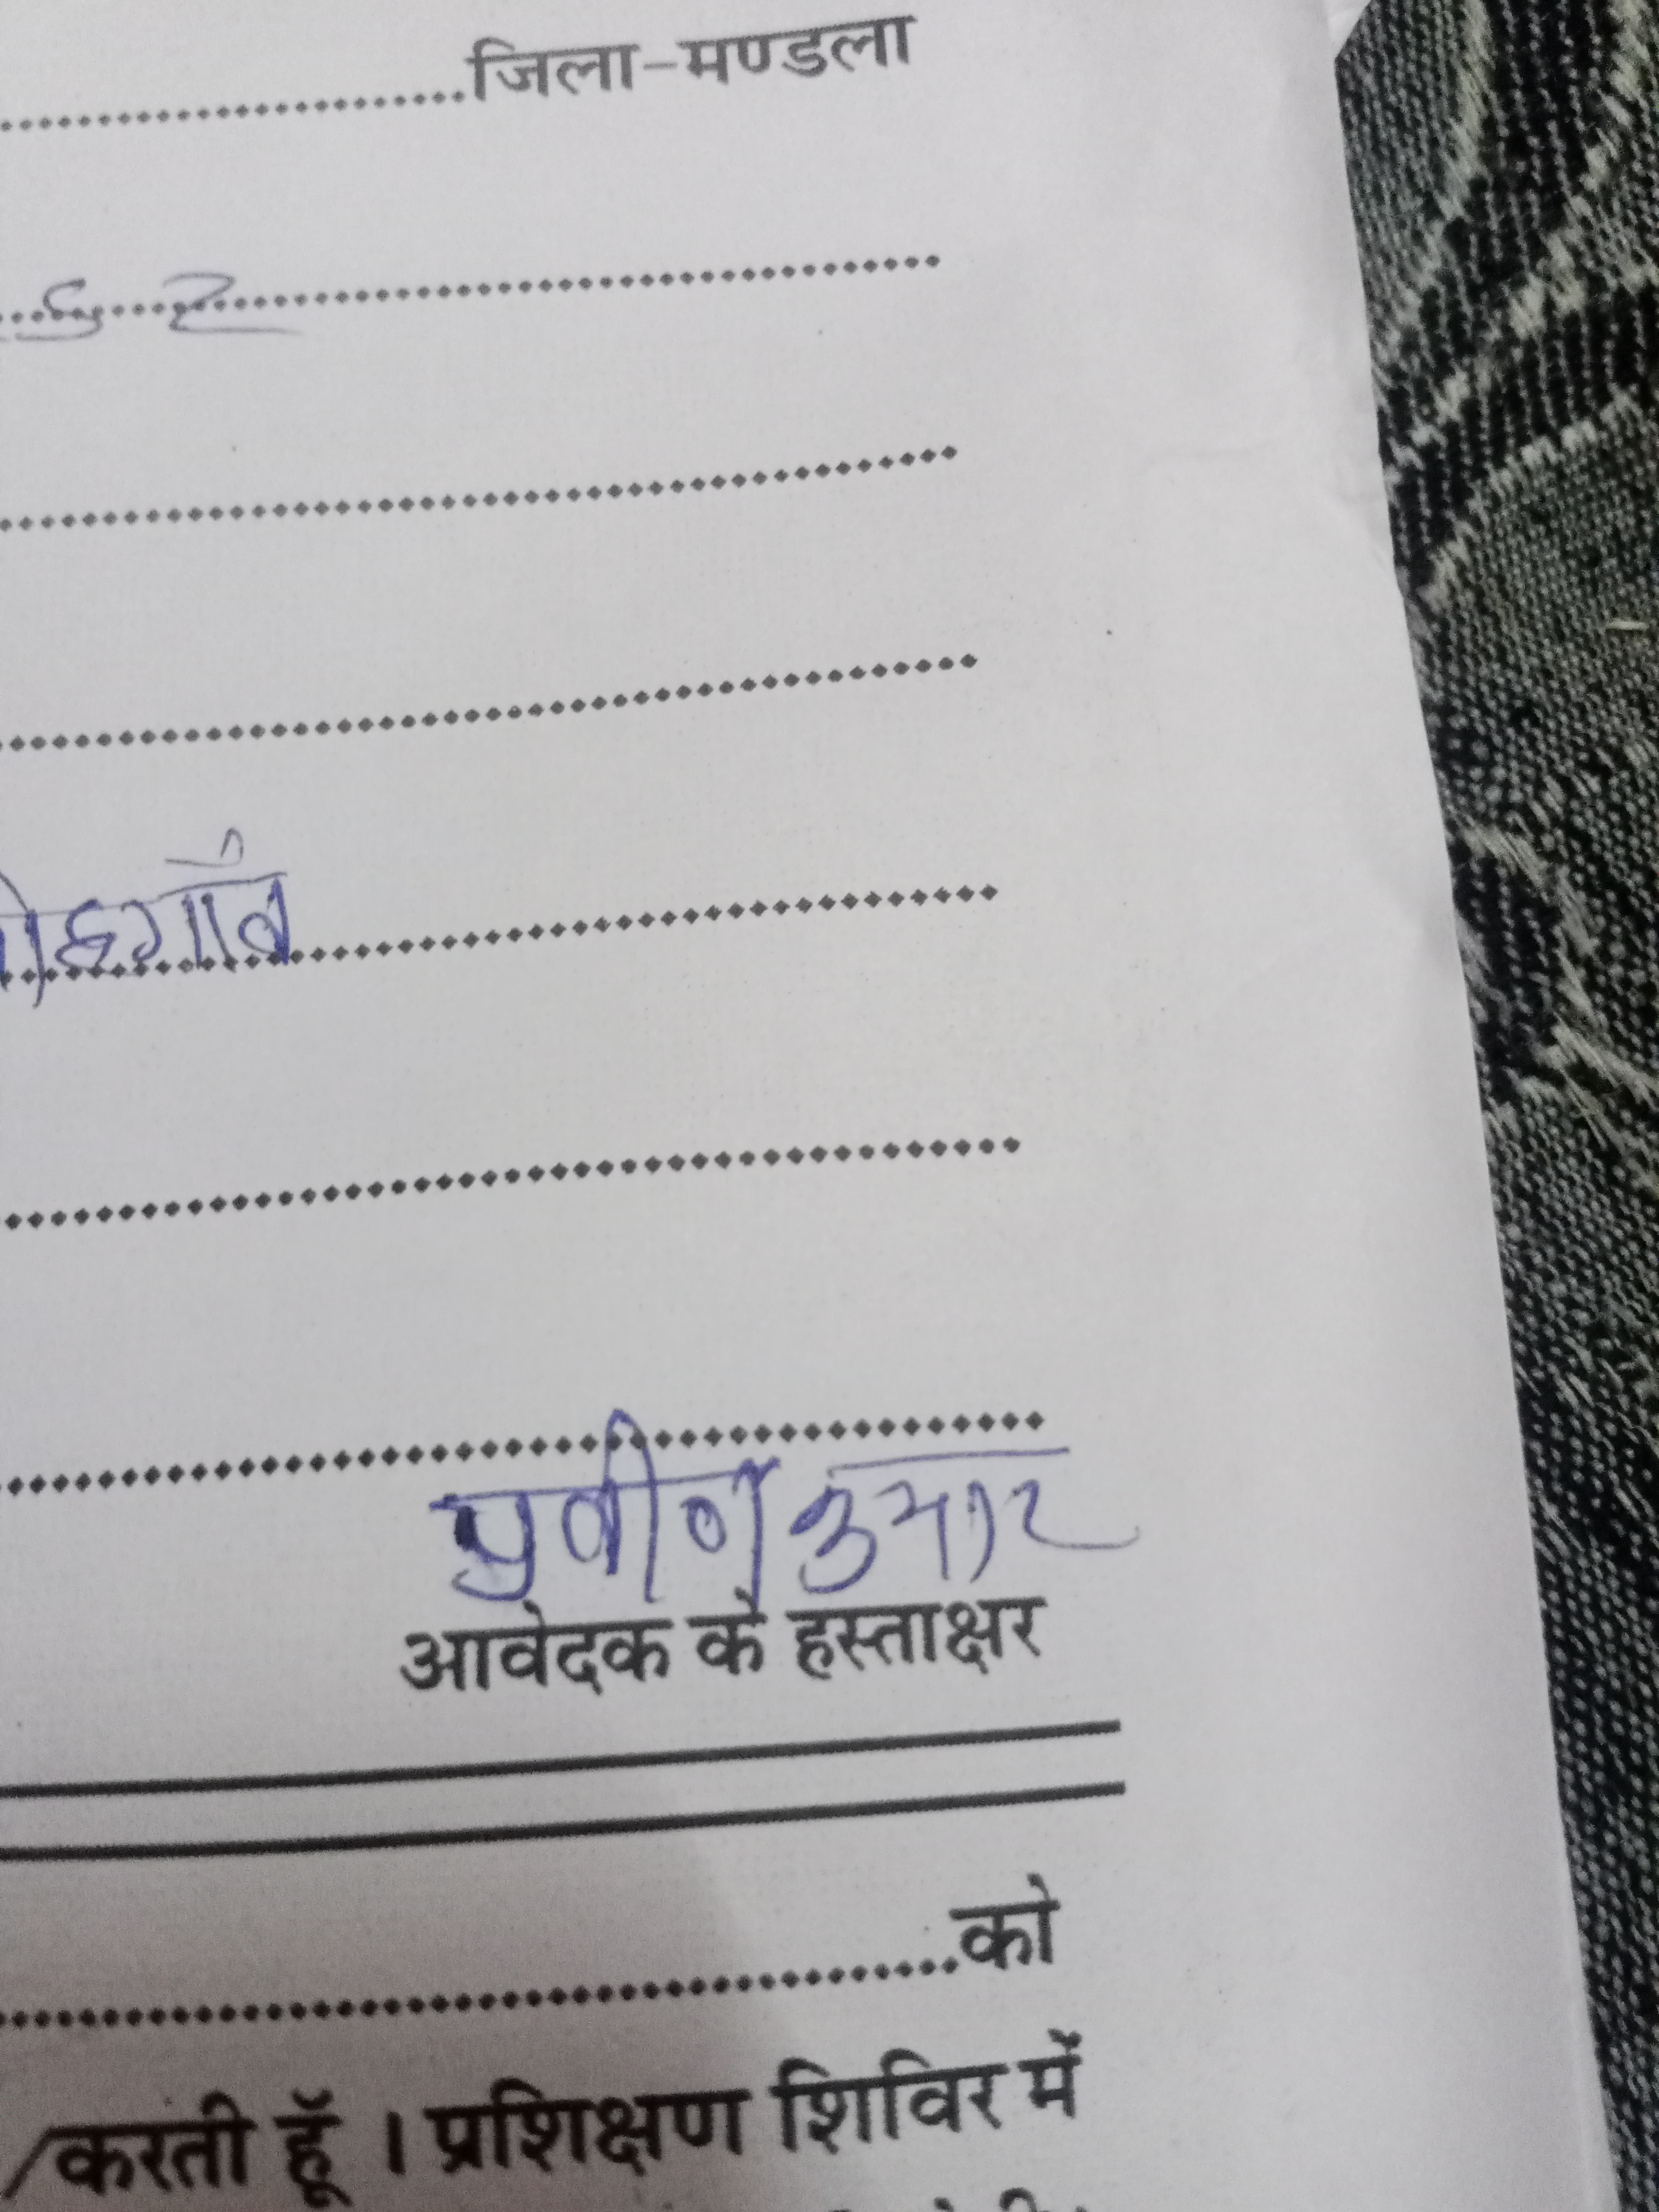 ....................जिला-मण्डला
गाँव
प्रवीण कुमार
आवेदक के हस्ताक्षर
....................को
/करती हूँ । प्रशिक्षण शिविर में